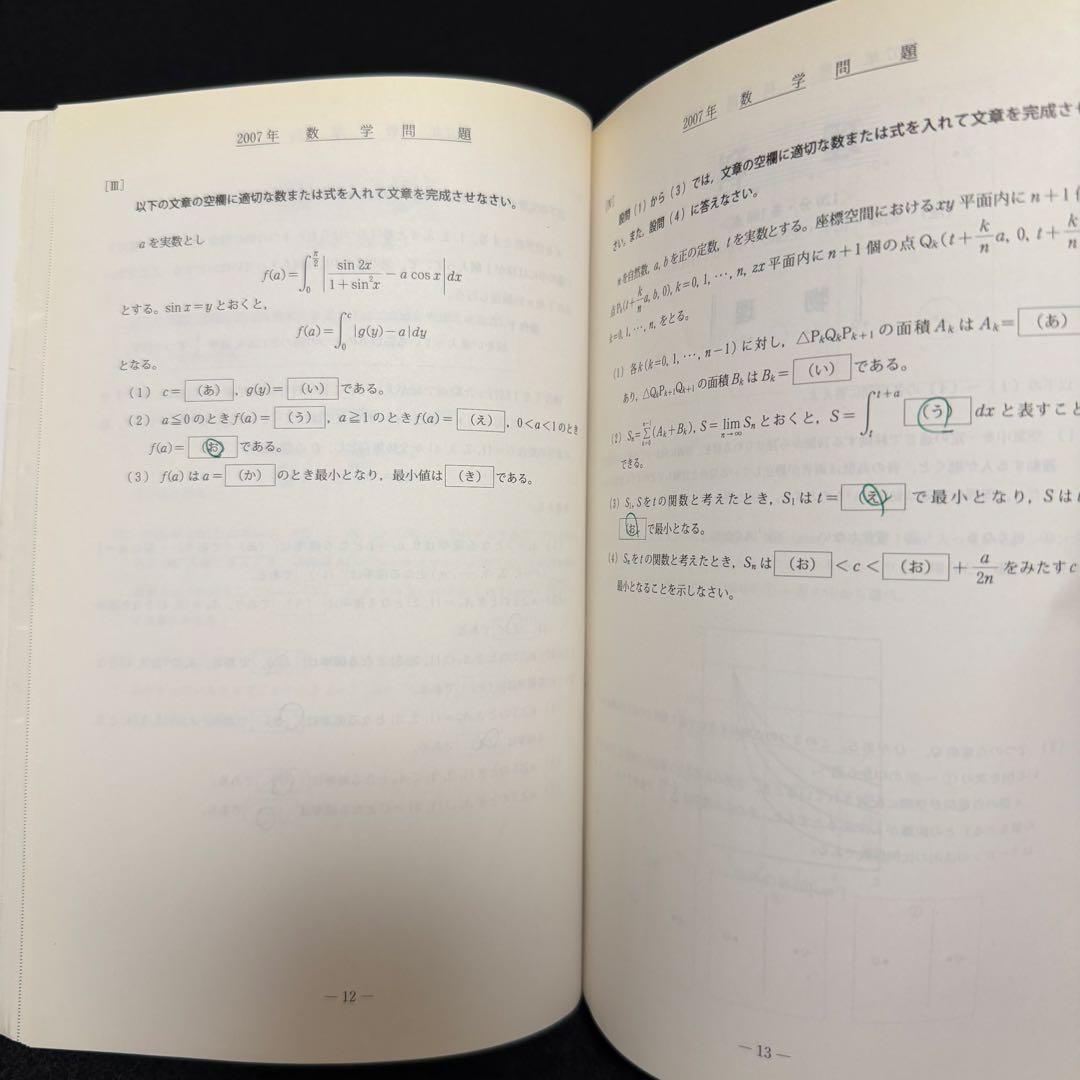 2007年 数学問題
[Ⅲ]
以下の文章の空欄に適切な数または式を入れて文章を完成させなさい。
aを実数とし
f(a)=∫_0^{π/2} | sin 2x / (1+sin²x) − a cos x | dx
とする。sin x=y とおくと,
f(a)=∫_0^c |g(y)−a|dy
となる。
(1) c=(あ), g(y)=(い)である。
(2) a≦0のときf(a)=(う), a≧1のときf(a)=(え), 0<a<1のとき
f(a)=(お)である。
(3) f(a)はa=(か)のとき最小となり, 最小値は(き)である。
— 12 —
2007年 数学問題
設問(1)から(3)では, 文章の空欄に適切な数または式を入れて文章を完成させ
さい。また, 設問(4)に答えなさい。
nを自然数, a, bを正の定数, tを実数とする。座標空間におけるxy平面内にn+1
点P_k(t+k/n a, b, 0), k=0, 1, …, n, zx平面内にn+1個の点Q_k(t+k/n a, 0, t+k/n
k=0, 1, …, n, をとる。
(1) 各k(k=0, 1, …, n−1)に対し, △P_kQ_kP_{k+1}の面積A_kはA_k=(あ)
あり, △Q_kP_{k+1}Q_{k+1}の面積B_kはB_k=(い)である。
(2) S_n=Σ_{k=0}^{n−1}(A_k+B_k), S=lim_{n→∞} S_nとおくと, S=∫_t^{t+a} (う) dxと表すこと
できる。
(3) S₁, Sをtの関数と考えたとき, S₁はt=(え)で最小となり, Sはt
(お)で最小となる。
(4) S_nをtの関数と考えたとき, S_nは(お)<c<(お)+a/2nをみたすc
最小となることを示しなさい。
— 13 —